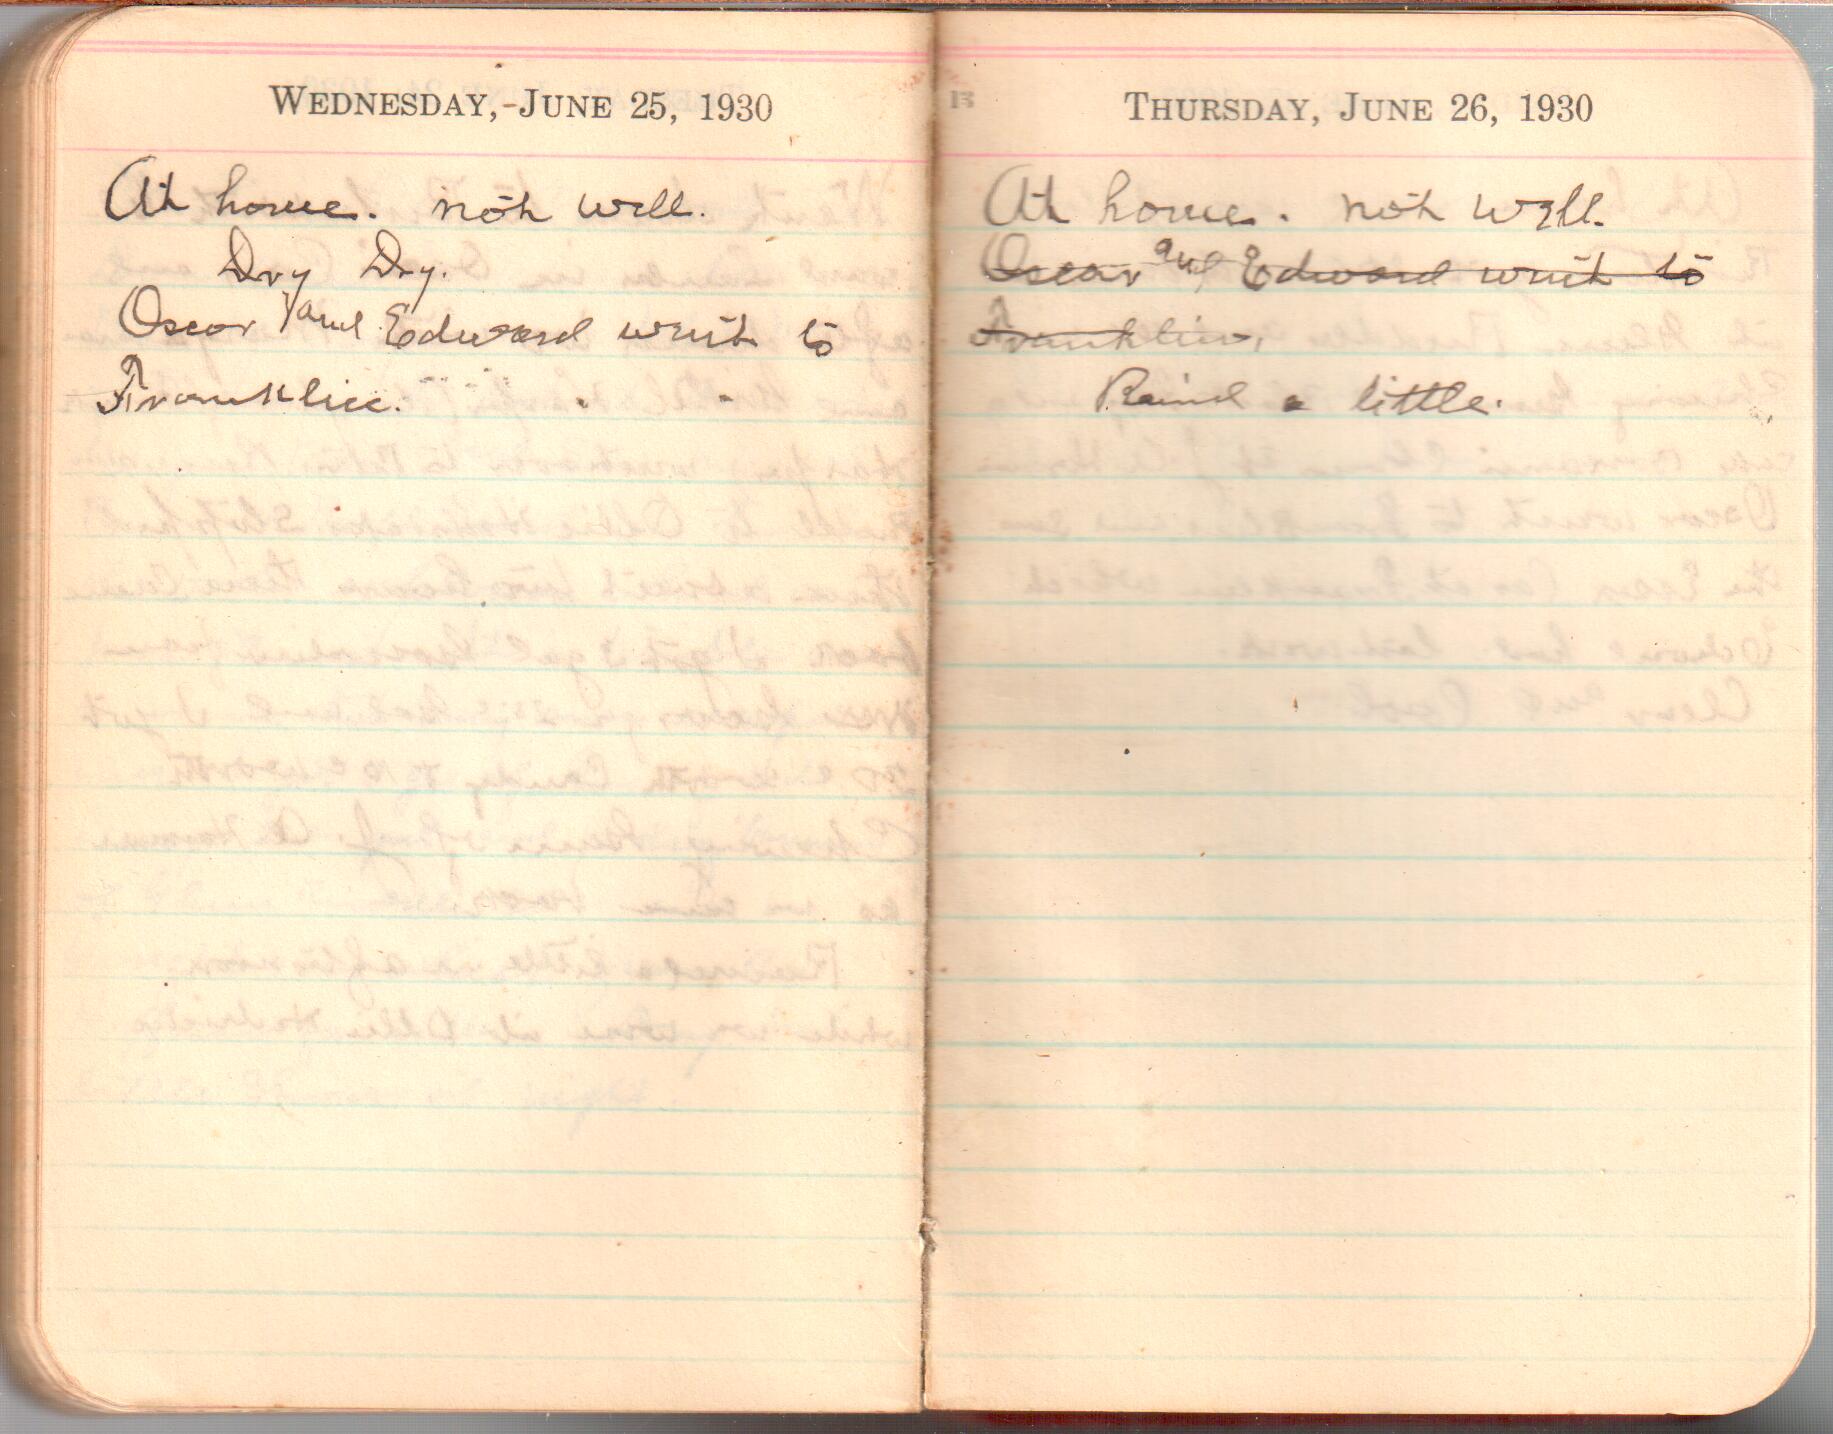 WEDNESDAY, JUNE 25, 1930
At home. not well.
Dry Dry.
Oscar and Edward went to
Franklin.
THURSDAY, JUNE 26, 1930
At home. not well.
Oscar and Edward went to
Franklin.
Raind a little.